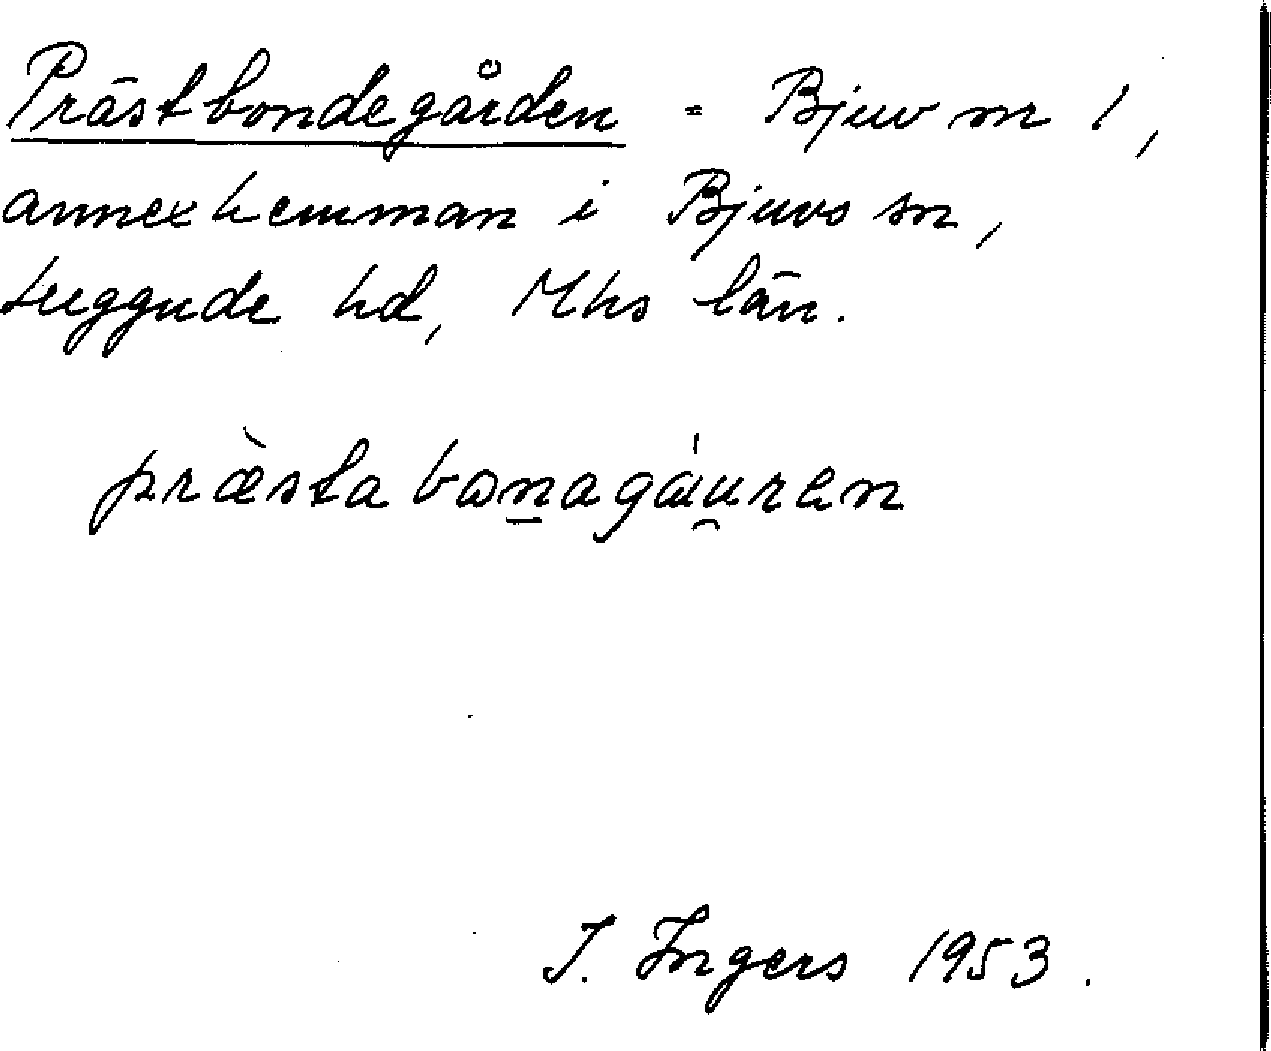 Prästbondegården = Bjuv nr 1,
annexhemman i Bjuvs sn,
Luggude hd, Mhs län.
præ̀stabonagáu̯ren
I. Ingers 1953.